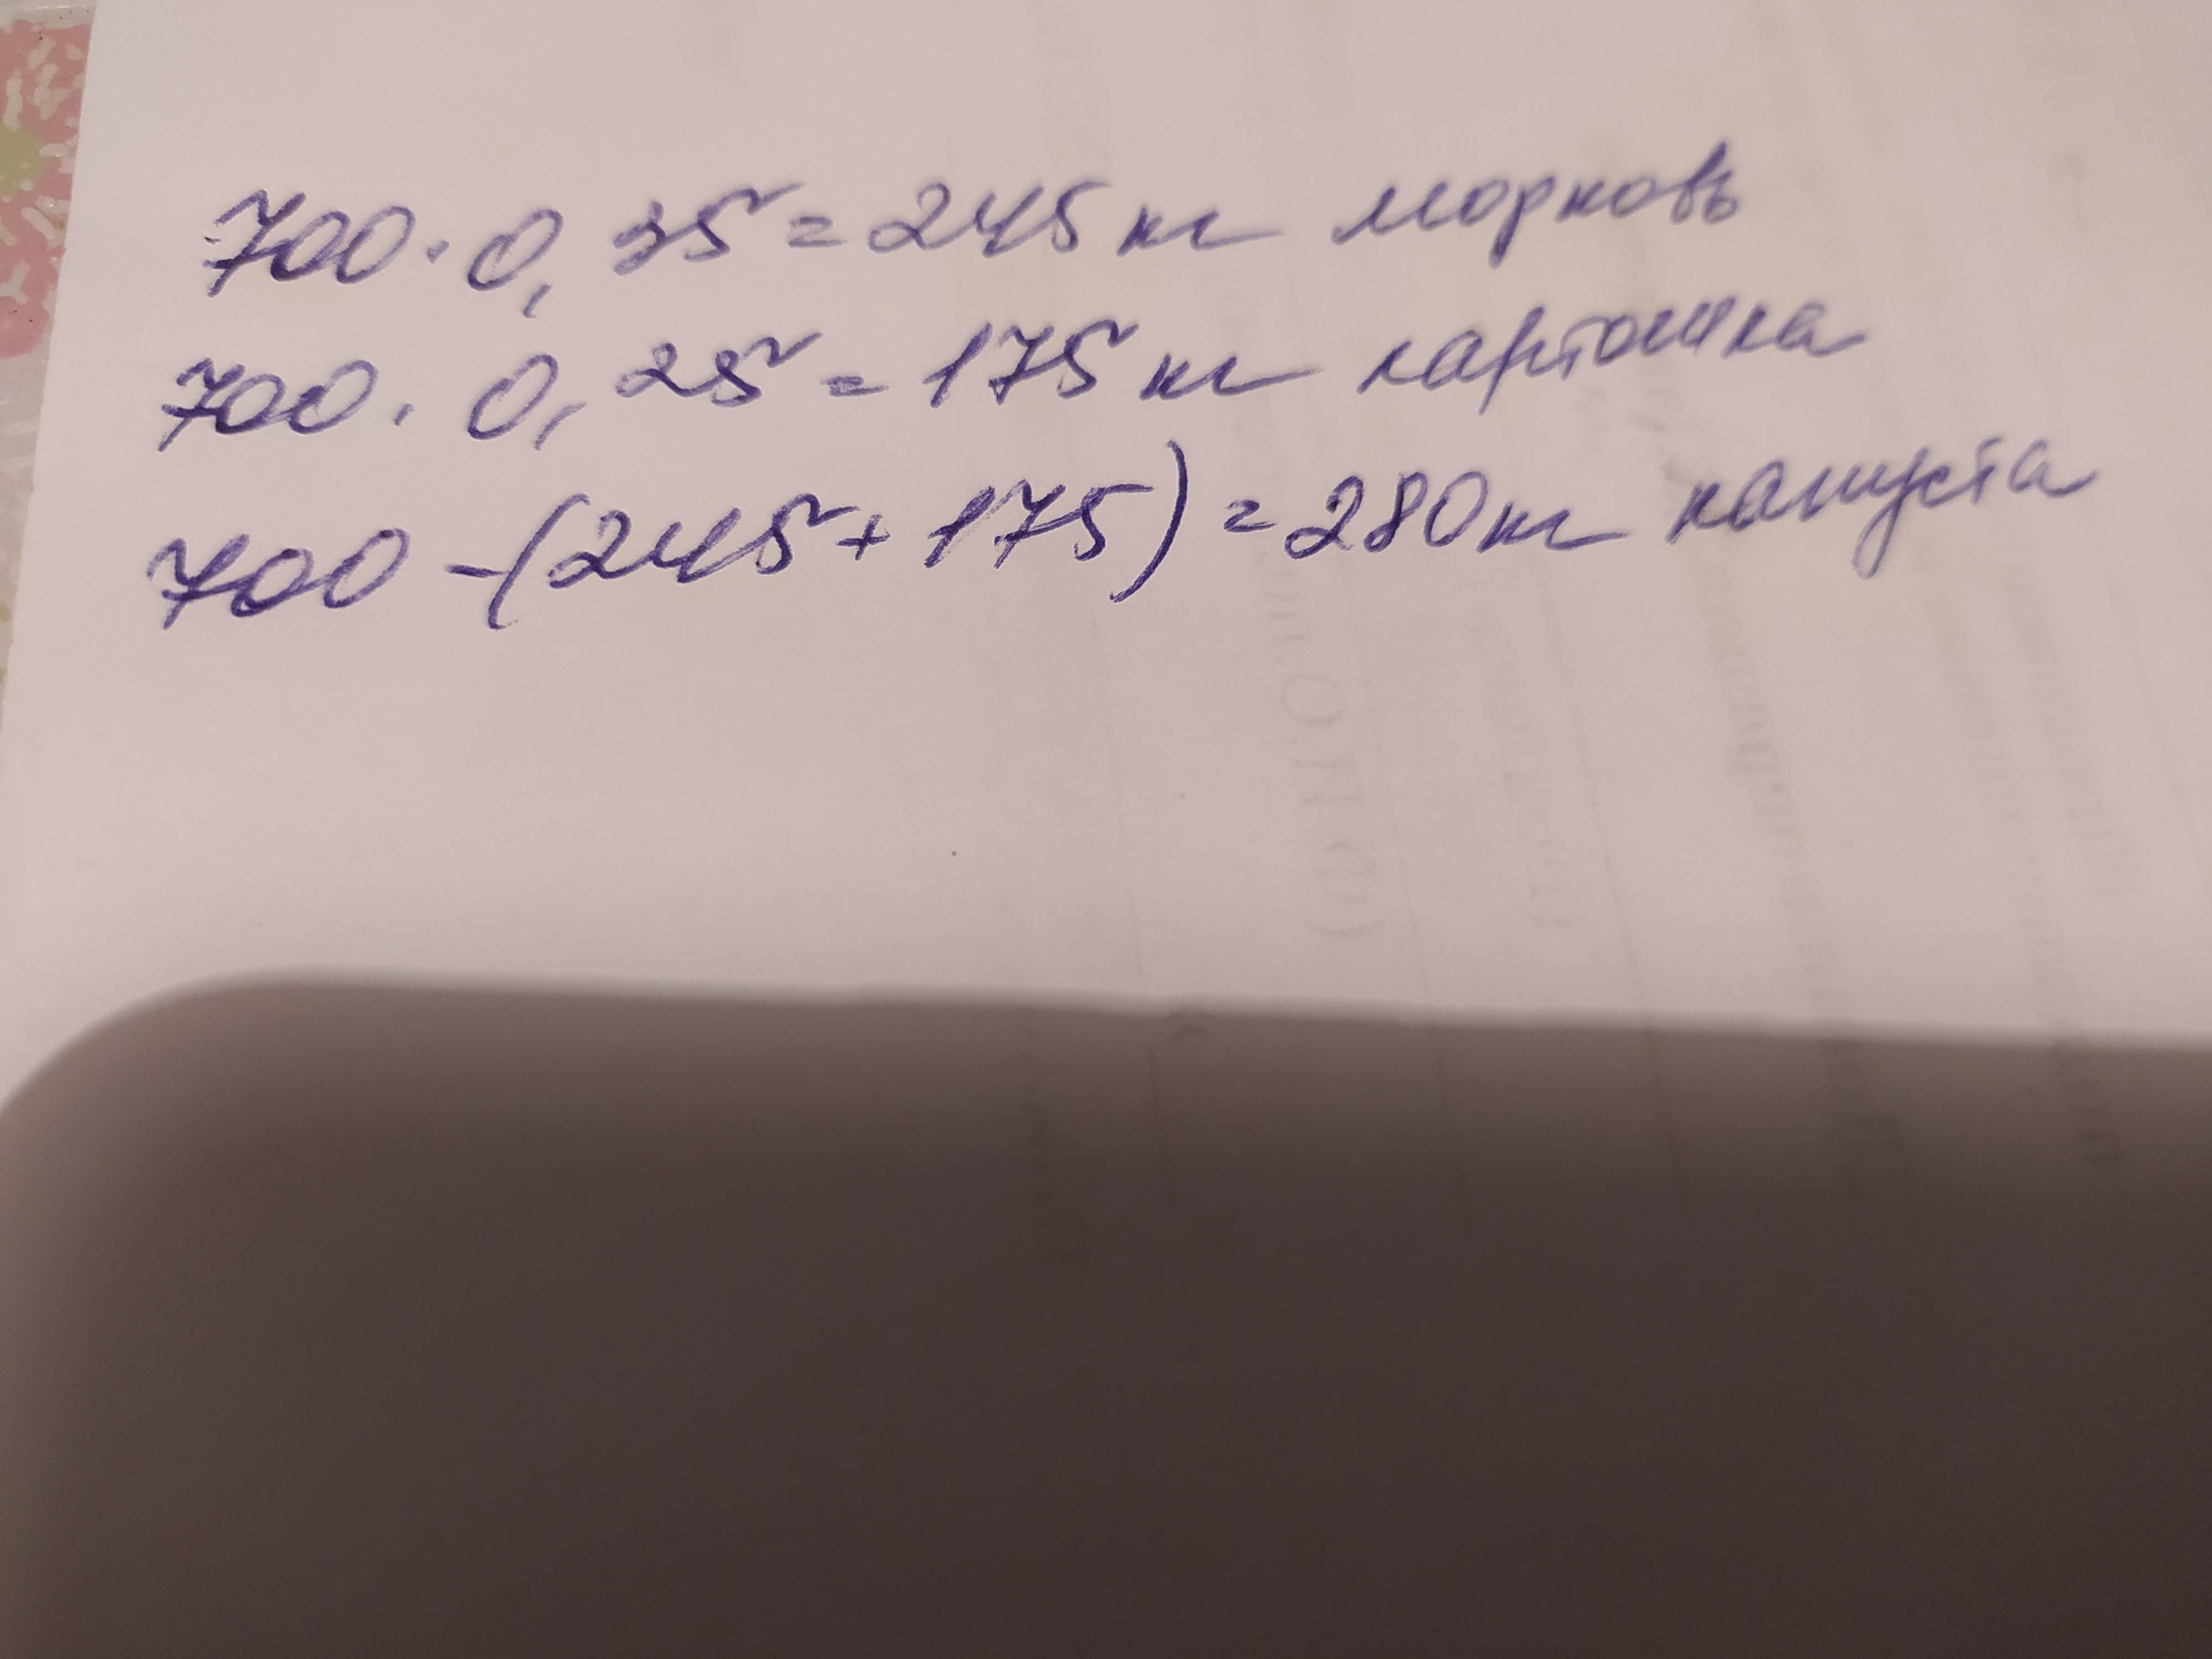 700 · 0,35 = 245 кг морковь
700 · 0,25 = 175 кг картошка
700 - (245 + 175) = 280 кг капуста